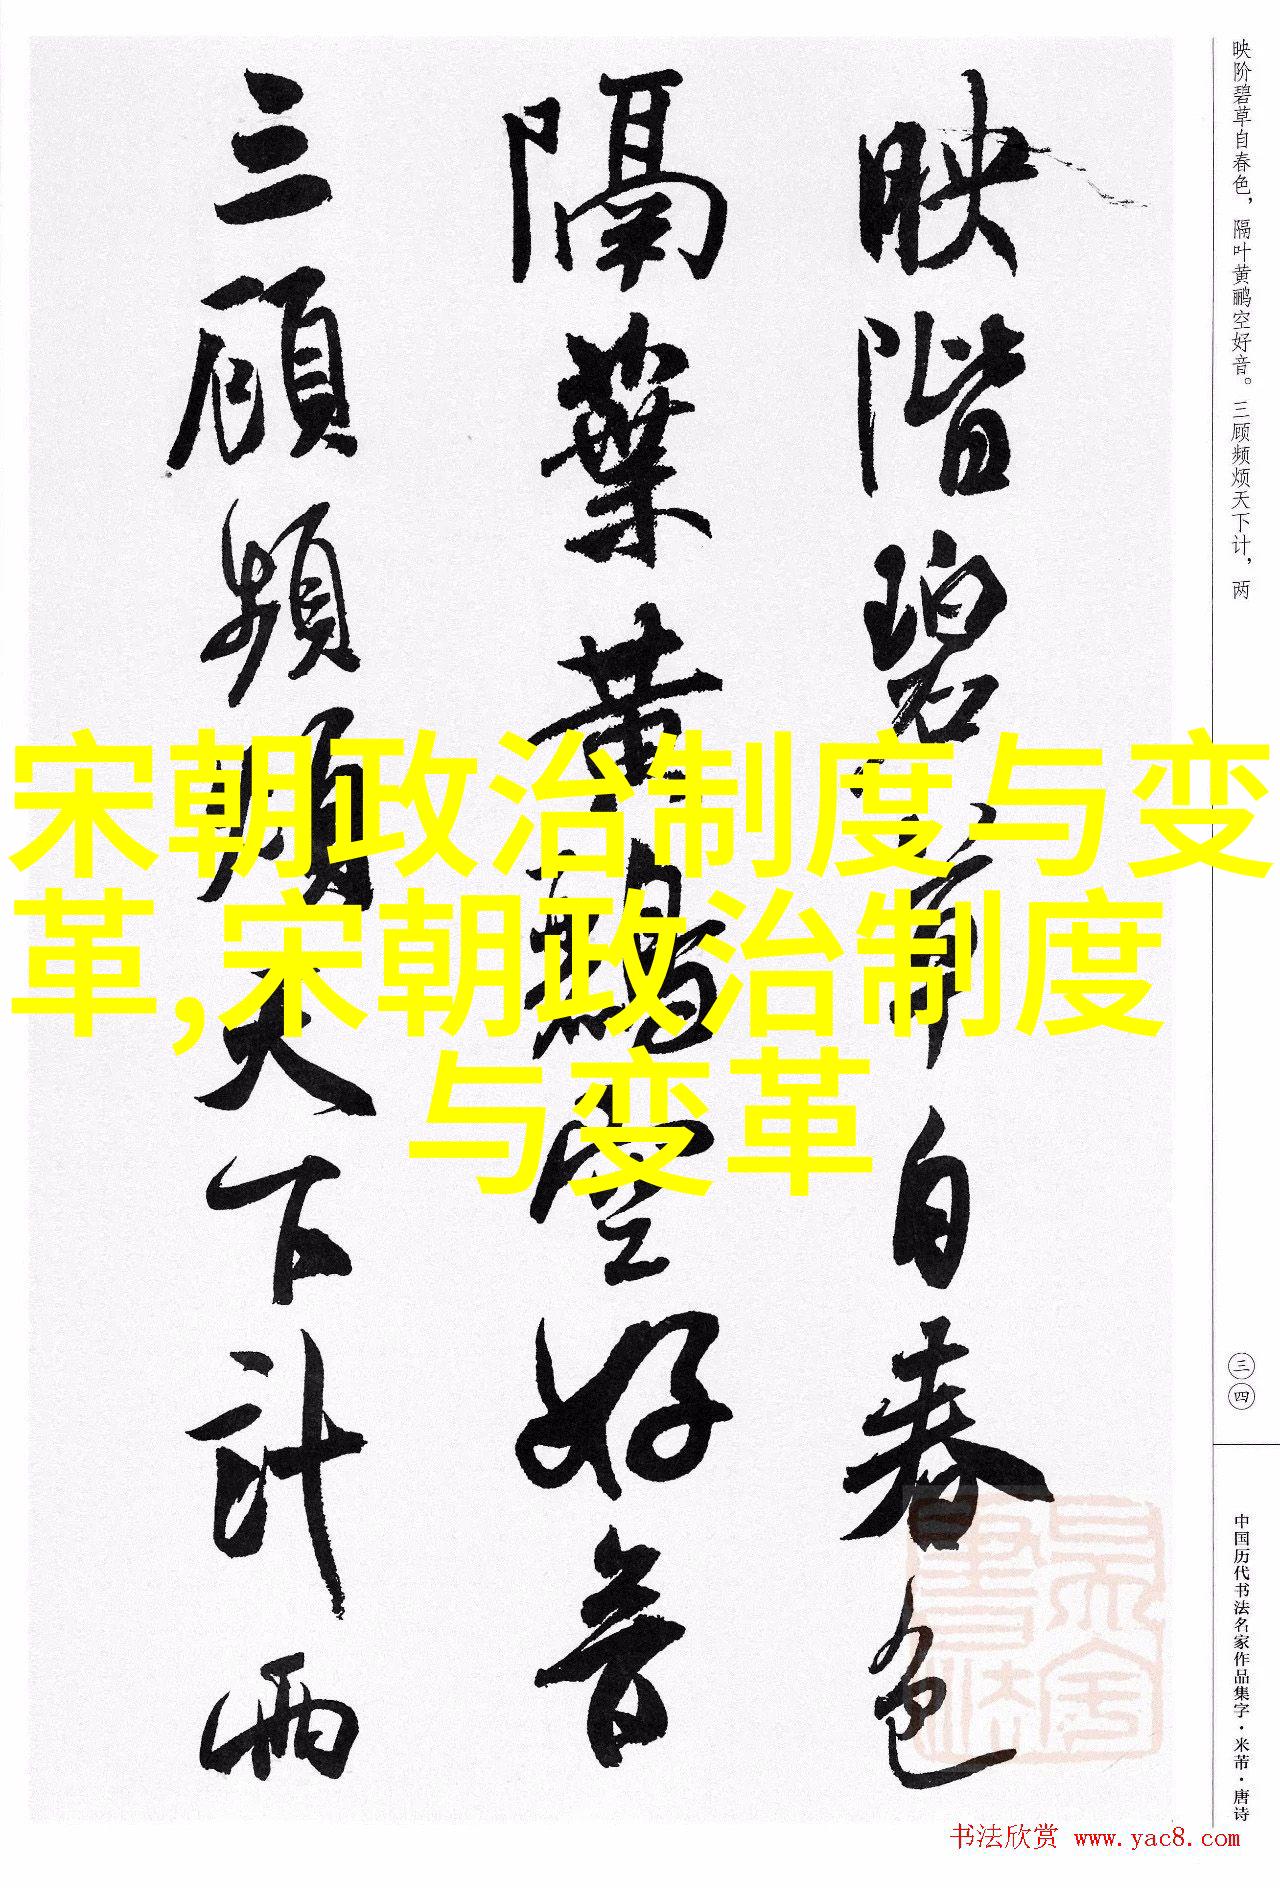 映阶碧草自春色，隔叶黄鹂空好音。三顾频烦天下计，两
映階碧草自春色
隔葉黃鸝空好音
三顧頻煩天下計兩
宋朝政治制度与变
革,宋朝政治制度
与变革
三四
中国历代书法名家作品集字·米芾·唐诗
书法欣赏 www.yac8.com